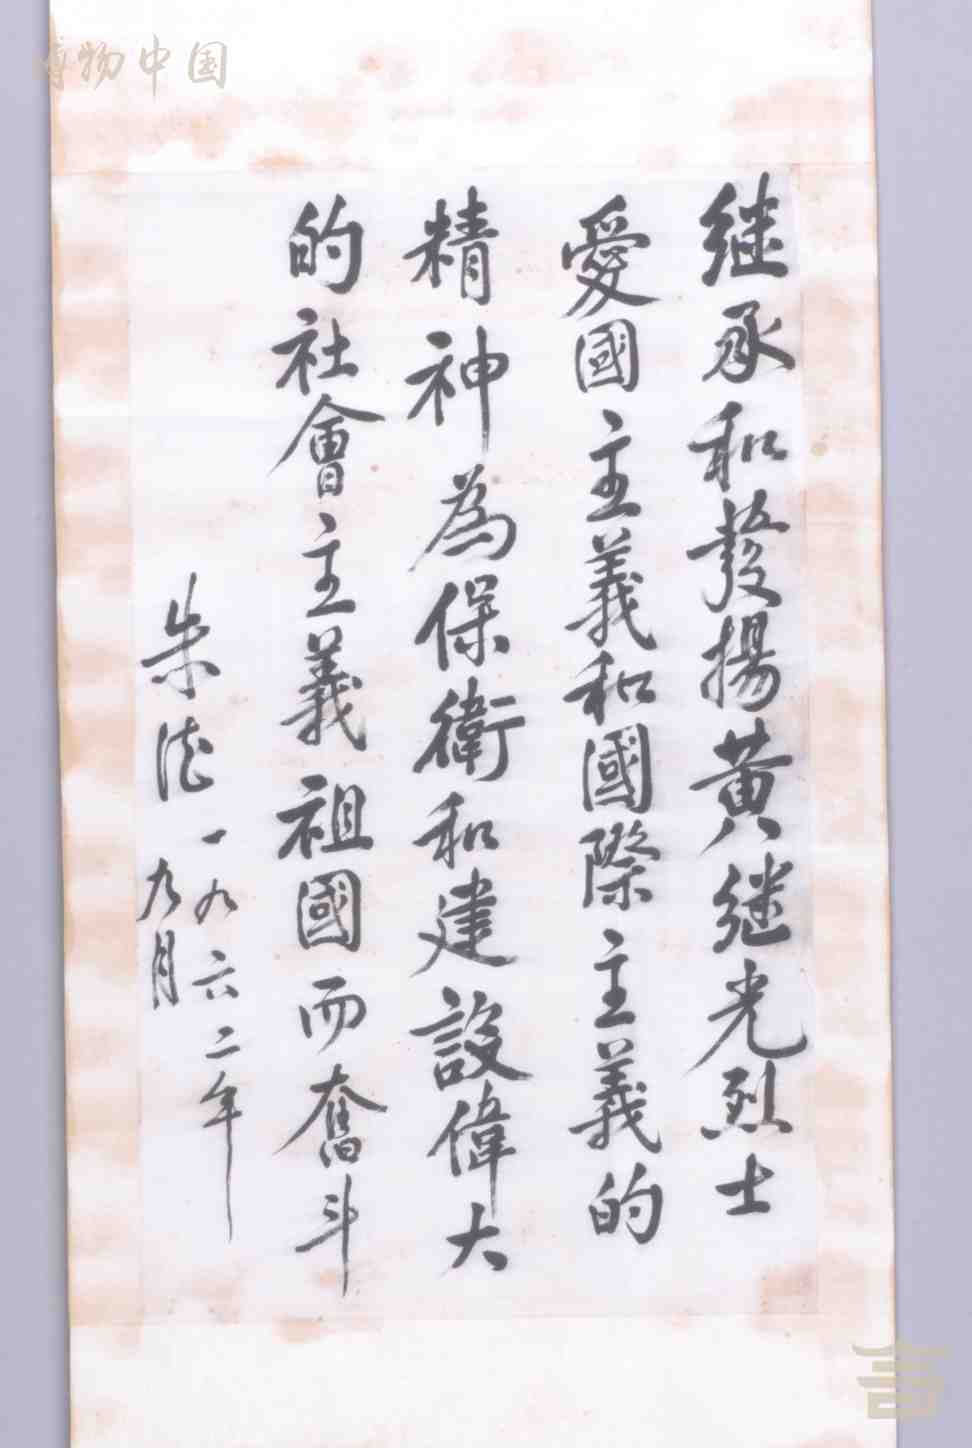 继承和發揚黄继光烈士
愛國主義和國際主義的
精神為保衛和建設偉大
的社會主義祖國而奮斗
朱德
一九六二年
九月
博物中国